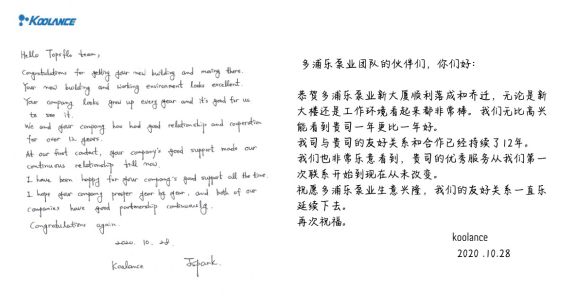 KOOLANCE
Hello Topsflo team,
Congratulations for getting your new building and moving there.
Your new building and working environment looks excellent.
Your company looks grow up every year and it's good for us
to see it.
We and your company has had good relationship and cooperation
for over 12 years.
At our first contact, your company's good support made our
continuous relationship till now.
I have been happy for your company's good support all the time.
I hope your company prosper year by year, and both of our
companies have good partnership continuously.
Congratulations again.
2020. 10. 28.
Koolance JSpark.
多浦乐泵业团队的伙伴们，你们好：
恭贺多浦乐泵业新大厦顺利落成和乔迁，无论是新
大楼还是工作环境看起来都非常棒。我们无比高兴
能看到贵司一年更比一年好。
我司与贵司的友好关系和合作已经持续了12年。
我们也非常乐意看到，贵司的优秀服务从我们第一
次联系开始到现在从未改变。
祝愿多浦乐泵业生意兴隆，我们的友好关系一直乐
延续下去。
再次祝福。
koolance
2020 .10.28